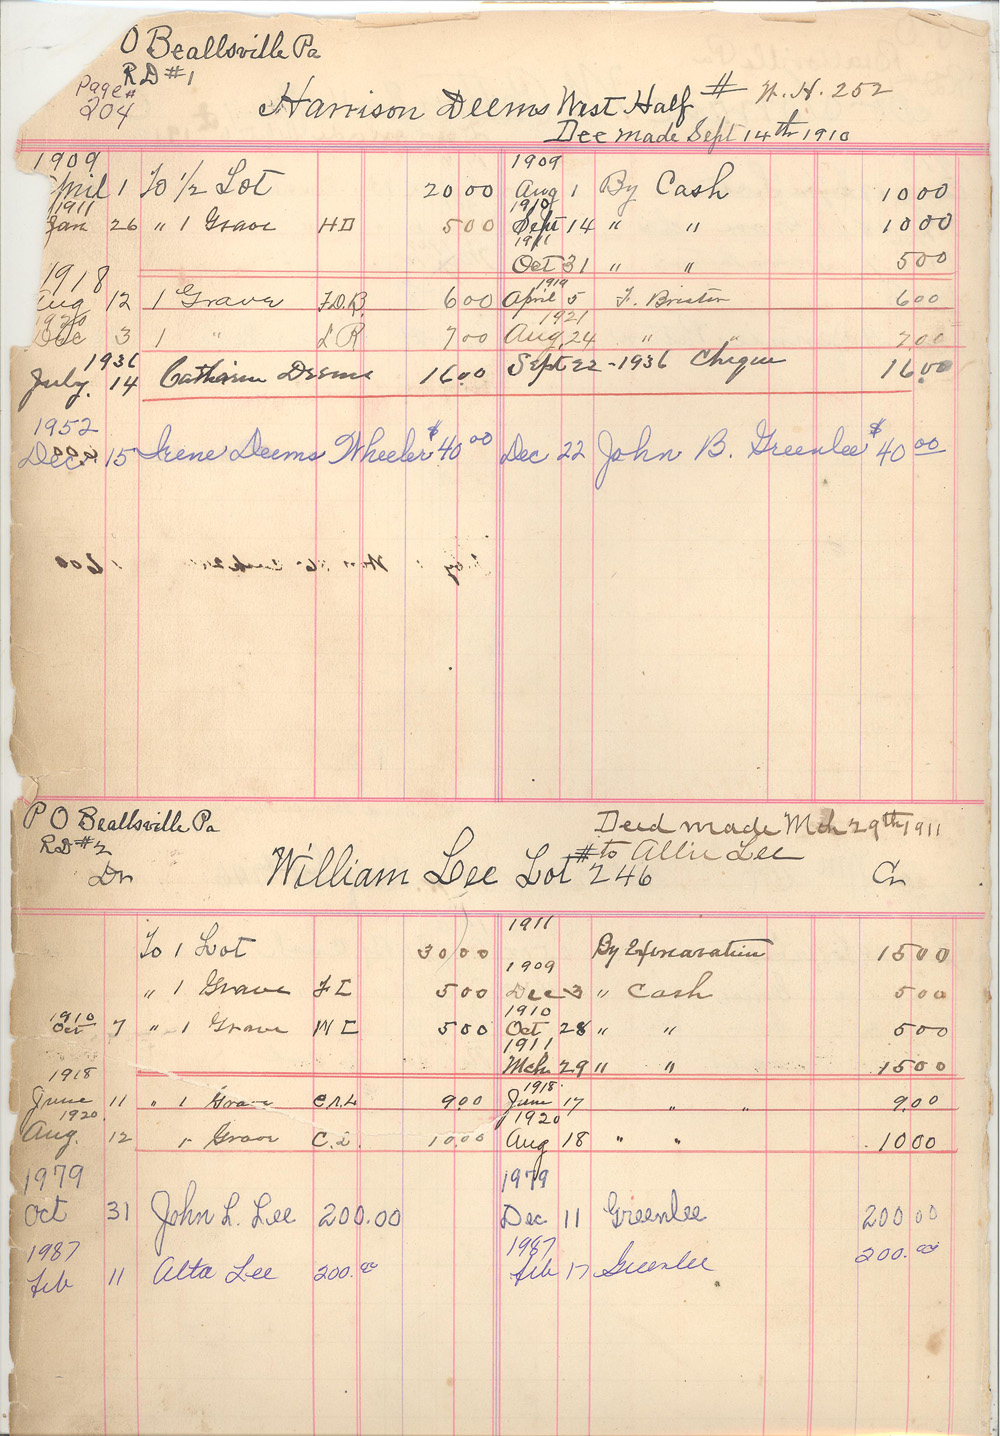 O Beallsville Pa
RD #1
Page#
204
Harrison Deems West Half # W. H. 252
Dee made Sept 14th 1910
1909 1909
April 1 To 1/2 Lot 20 00 Aug 1 By Cash 10 00
1911 1910
Jan 26 " 1 Grave H D 5 00 Sept 14 " " 10 00
1911
Oct 31 " " 5 00
1918 1919
Aug 12 1 Grave F.D.B. 6 00 April 5 F. 6 00
1920 1921
Dec 3 1 " 7 00 Aug 24 " " 7 00
1936
July. 14 Catharin Deems 16.00 Sept 22-1936 Cheque 16.00
1952
Dec 15 Irene Deems Wheeler $40 00 Dec 22 John B. Greenlee $40 00
P O Beallsville Pa Deed made Mch 29th 1911
RD #2 to Allie Lee
Dr William Lee Lot # 246 Cr
1911
To 1 Lot 30 00 By 15 00
1909
" 1 Grave 5 00 Dec 3 " Cash 5 00
1910 1910
Oct 7 " 1 Grave 5 00 Oct 28 " " 5 00
1911
Mch 29 " " 15 00
1918 1918
June 11 " 1 Grave 9 00 June 17 " " 9.00
1920 1920
Aug. 12 1 Grave 10.00 Aug 18 " " 10 00
1979 1979
Oct 31 John L. Lee 200.00 Dec 11 Greenlee 200 00
1987 1987
Feb 11 Alta Lee 200.00 Feb 17 Greenlee 200.00